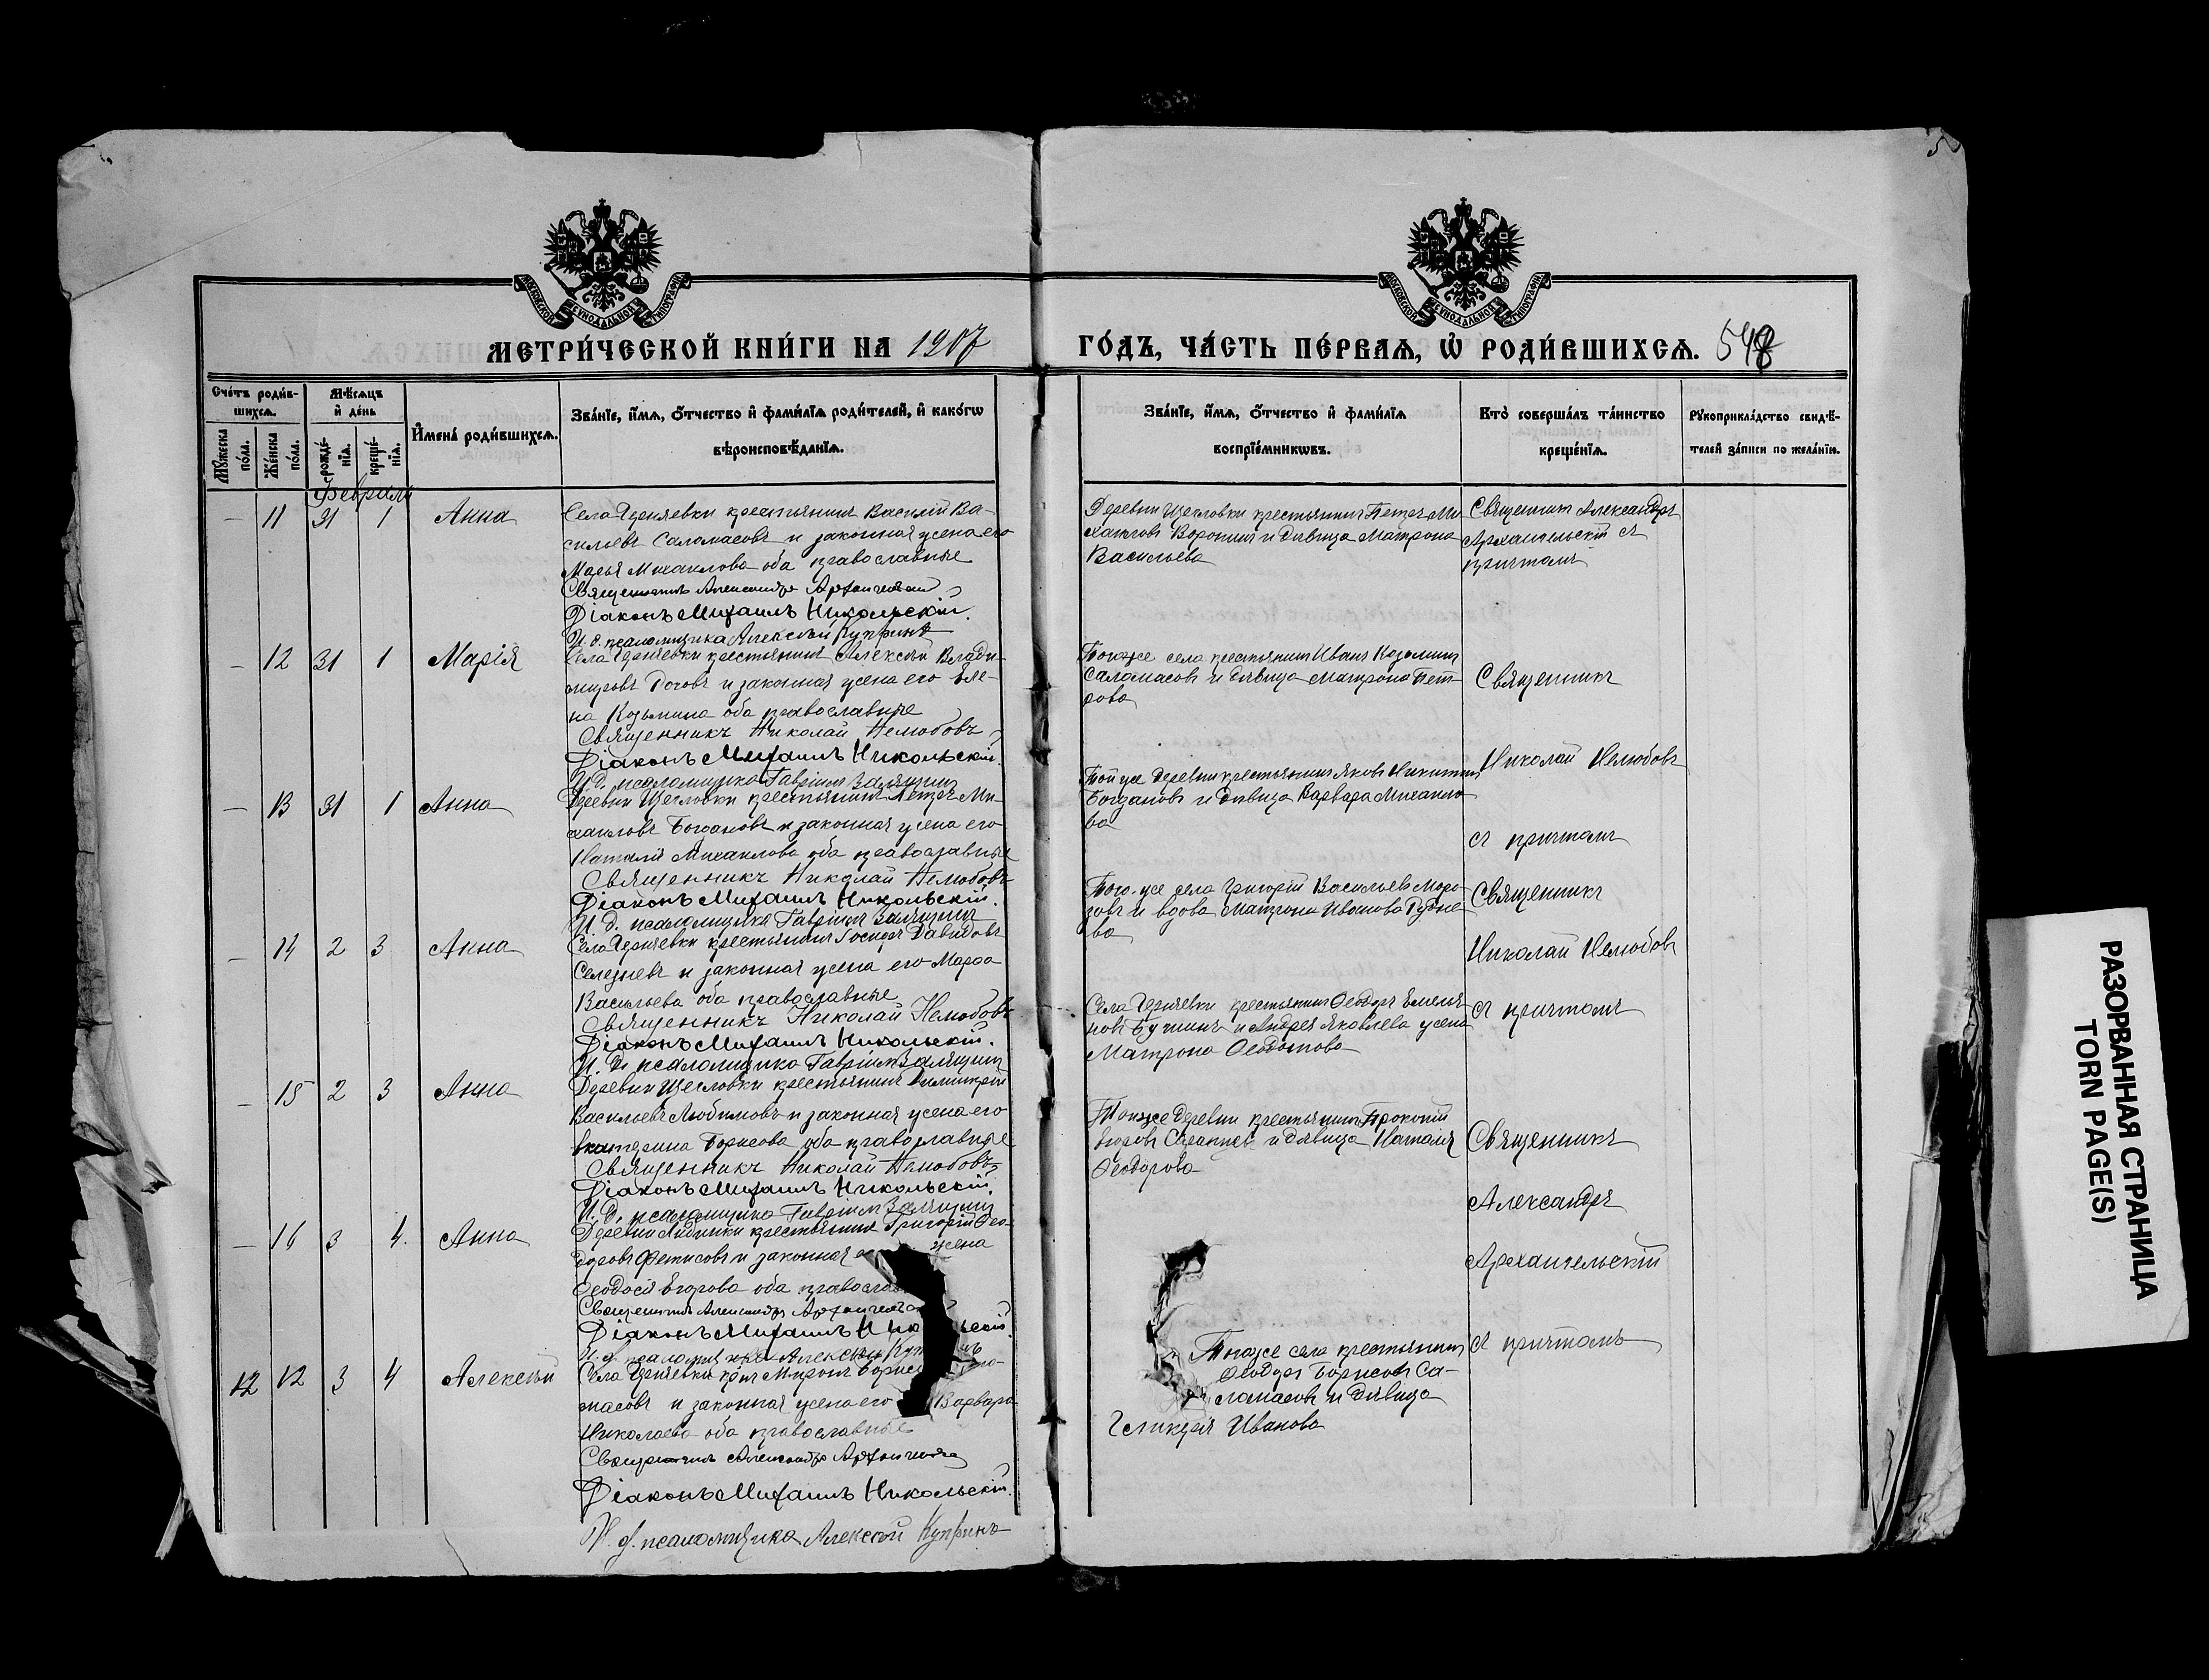 5
МОСКОВСКОЙ СУНОДАЛЬНОЙ ТИПОГРАФІИ
МОСКОВСКОЙ СУНОДАЛЬНОЙ ТИПОГРАФІИ
МЕТРИ́ЧЕСКОЙ КНИ́ГИ НА 1907
ГО́ДЪ, ЧА́СТЬ ПЕ́РВАЯ, Ѡ РОДИ́ВШИХСЯ. 548
Сче́тъ роди́в-
шихся.
Мѣ́сяцъ
и де́нь
Му́жеска
по́ла.
Же́нска
по́ла.
рожде́-
нїя.
креще́-
нїя.
Имена́ роди́вшихся.
Зва́нїе, и́мя, о́тчество и фами́лїя роди́телей, и како́гѡ
вѣроисповѣ́данїя.
Зва́нїе, и́мя, о́тчество и фами́лїя
воспрїе́мникѡвъ.
Кто̀ соверша́лъ та́инство
креще́нїя.
Рукоприкла́дство свидѣ́-
телей за́писи по жела́нїю.
Февраля
— 11 31 1 Анна
крестьянинъ Василій Ва-
сильевъ Саламасовъ и законная жена его
Марья Михаилова оба православные
Священникъ Александръ Архангельскій
Діаконъ Михаилъ Никольскій.
И. д. псаломщика Алексѣй Купринъ
Деревни Щегловки крестьянинъ Петръ Ми-
хаиловъ Воронинъ и дѣвица Матрона
Васильева
Священникъ Александръ
Архангельскій съ
причтомъ
— 12 31 1 Марія
крестьянинъ Алексѣй Влади-
мировъ и законная жена его Еле-
на Козьмина оба православные
Священникъ Николай Нелюбовъ
Діаконъ Михаилъ Никольскій.
И. д. псаломщика Гавріилъ
Тогоже села крестьянинъ Иванъ Козьминъ
Саламасовъ и дѣвица Матрона Пет-
рова
Священникъ
Николай Нелюбовъ
съ причтомъ
— 13 31 1 Анна
Деревни Щегловки крестьянинъ Петръ Ми-
хаиловъ Богдановъ и законная жена его
Наталія Михаилова оба православные
Священникъ Николай Нелюбовъ
Діаконъ Михаилъ Никольскій.
И. д. псаломщика Гавріилъ
Той же деревни крестьянинъ Яковъ Никитинъ
Богдановъ и дѣвица Варвара Михаило-
ва
— 14 2 3 Анна
крестьянинъ Давидовъ
Селезневъ и законная жена его Марѳа
Васильева оба православные
Священникъ Николай Нелюбовъ
Діаконъ Михаилъ Никольскій.
И. д. псаломщика Гавріилъ
Того-же села Григорій Васильевъ Моро-
зовъ и вдова Матрона Иванова Рудне-
ва
Священникъ
Николай Нелюбовъ
съ причтомъ
— 15 2 3 Анна
Деревни Щегловки крестьянинъ Димитрій
Васильевъ Любимовъ и законная жена его
Екатерина Борисова оба православные
Священникъ Николай Нелюбовъ
Діаконъ Михаилъ Никольскій.
И. д. псаломщика Гавріилъ
крестьянинъ Ѳеодоръ Емелья-
новъ и Андрея Яковлева жена
Матрона Ѳедотова
— 16 3 4. Анна
Деревни крестьянинъ Григорій Ѳео-
доровъ Фетисовъ и законная жена
Ѳеодосія Егорова оба
Священникъ Александръ
Діаконъ Михаилъ
И. д. псаломщика Алексѣй
Тойже деревни крестьянинъ Прокопій
Егоровъ и дѣвица Наталія
Ѳеодорова
Священникъ
Александръ
Архангельскій
съ причтомъ
12 12 3 4 Алексѣй
Миронъ
масовъ и законная жена его Варвара
Николаева оба православные
Священникъ Александръ
Діаконъ Михаилъ Никольскій.
И. д. псаломщика Алексѣй Купринъ
Тогоже села крестьянинъ
Ѳеодоръ Борисовъ Са-
ламасовъ и дѣвица
Гликерія Иванова
РАЗОРВАННАЯ СТРАНИЦА
TORN PAGE(S)